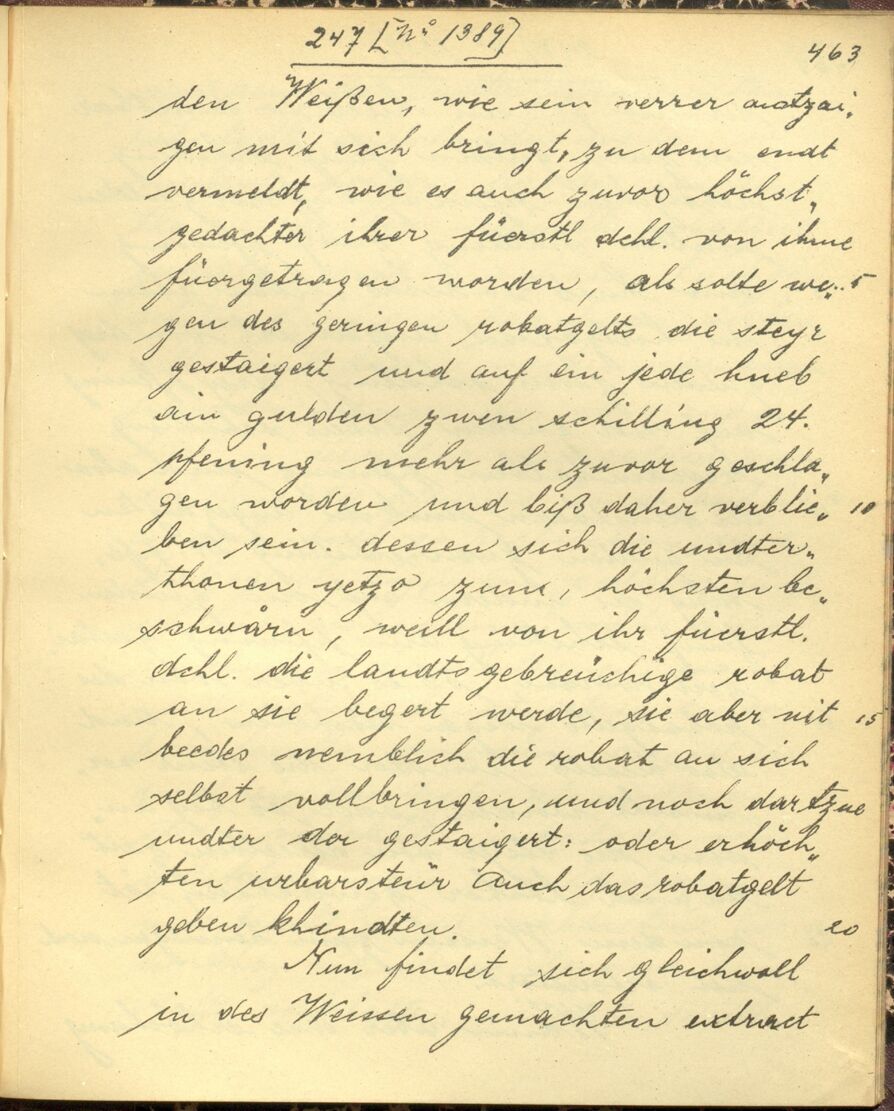 247 [No 1389]
463
den Weißen, wie sein verrer antzai„
gen mit sich bringt, zu dem endt
vermeldt, wie es auch zuvor höchst„
gedachter ihrer füerstl dchl. von ihme
füorgetragen worden, als solte we„ 5
gen des geringen robatgelts die steyr
gestaigert und auf ein jede hueb
ain gulden zwen schilling 24.
pfening mehr als zuvor geschla„
gen worden und biß daher verblie„ 10
ben sein. dessen sich die undter„
thonen yetzo zum, höchsten be„
schwärn, weill von ihr füerstl.
dchl. die landtsgebreüchige robat
an sie begert werde, sie aber nit 15
beedes nemblich die robat an sich
selbst vollbringen, und noch dartzue
undter der gestaigert: oder erhöch„
ten urbarsteür auch das robatgelt
geben khindten. 20
Nun findet sich gleichwoll
in des Weissen gemachten extract